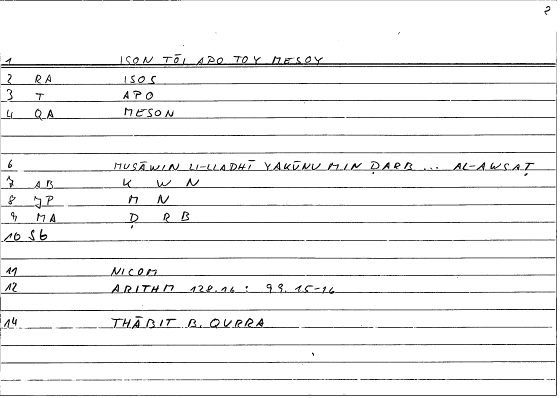 2
1 ISON TŌI APO TOY MESOY
2 RA ISOS
3 T APO
4 QA MESON
6 MUSĀWIN LI-LLADHĪ YAKŪNU MIN ḌARB ... AL-AWSAṬ
7 AB K W N
8 JP M N
9 MA Ḍ R B
10 56
11 NICOM
12 ARITHM 128.16 : 99.15-16
14 THĀBIT B. QURRA